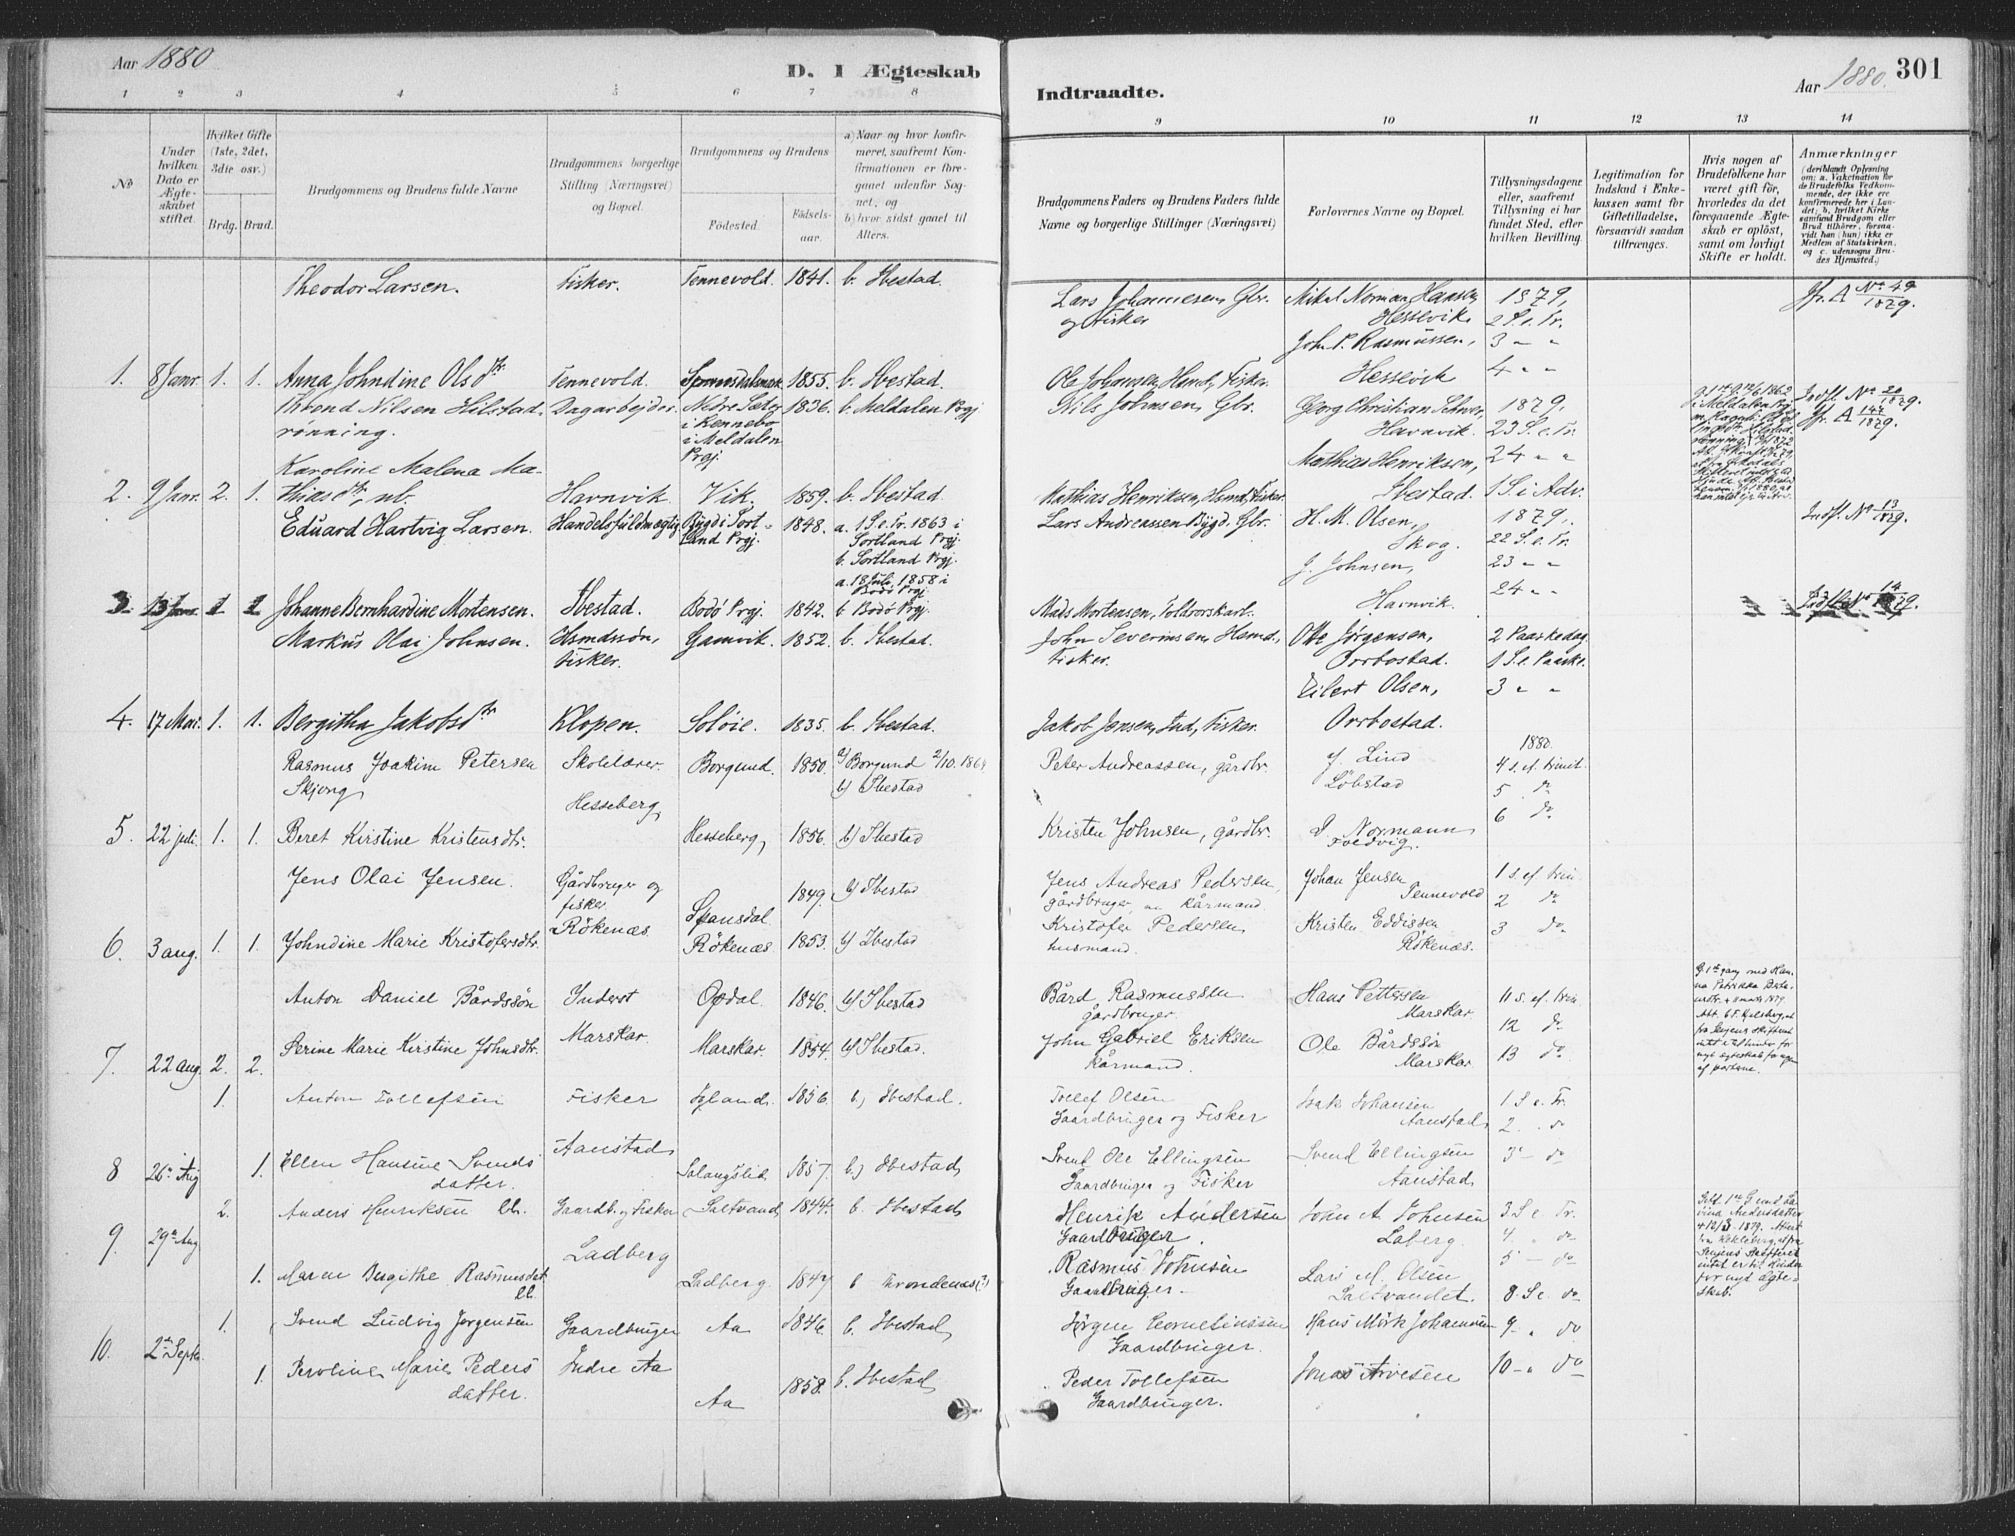 Aar 1880
D. 1 Ægteskab
Indtraadte.
Aar 1880.
301
1 2 3 4 5 6 7 8
9 10 11 12 13 14
No
Under hvilken Dato er Ægteskabet stiftet.
Hvilket Gifte (1ste, 2det, 3die osv.)
Brdg. Brud.
Brudgommens og Brudens fulde Navne
Brudgommens borgerlige Stilling (Næringsvei) og Bopæl.
Brudgommens og Brudens
Fødested.
Fødselsaar.
a) Naar og hvor konfirmeret, saafremt Konfirmationen er foregaaet udenfor Sognet, og
b) hvor sidst gaaet til Alters.
Brudgommens Faders og Brudens Faders fulde Navne og borgerlige Stillinger (Næringsvei)
Forlovernes Navne og Bopæl.
Tillysningsdagene eller, saafremt Tillysning ei har fundet Sted, efter hvilken Bevilling.
Legitimation for Indskud i Enkekassen samt for Giftetilladelse, forsaavidt saadan tiltrænges.
Hvis nogen af Brudefolkene har været gift før, hvorledes da det foregaaende Ægteskab er opløst, samt om lovligt Skifte er holdt.
Anmærkninger (deriblandt Oplysning om: a. Vakcination for de Brudefolks Vedkommende, der ikke ere konfirmerede her i Landet; b. hvilket Kirkesamfund Brudgom eller Brud tilhører, forsaavidt han (hun) ikke er Medlem af Statskirken, og c. udensogns Brudes Hjemsted.)
Theodor Larsen. Fisker. Tennevold. 1841. b. Ibestad. Lars Johannesen, Gbr. og Fisker Mikal Norman Hansen, Hessevik. 1879, 2 S. e. Tr. Jfr. A No 49/1879.
John P. Rasmussen, 3 " "
1. 8 Janr. 1. 1. Anna Johndine Olsdtr Tennevold. 1855. b. Ibestad. Ole Johansen, Hsmd, Fisker. Hessevik 4 " "
Thrond Nilsen Hilstadrønning. Dagarbejder. Nedre Sæter i Rennebo i Meldalen Prgj. 1836. b. Meldalen Prgj. Nils Johnsen, Gbr. Georg Christian Schrør, Havnvik. 1879, 23 S. e. Tr. Indfl. No 20/1879. Jfr. A 144/1879.
Mathias Henriksen, 24 " "
2. 9 Janr. 2. 1. Karoline Malena Mathiasdtr ub. Havnvik Vik. 1859. b. Ibestad. Mathias Henriksen, Hsmd, Fisker. Ibestad. 1 S. i Adv.
Eduard Hartvig Larsen. Handelsfuldmægtig Bygd i Sortland Prgj. 1848. a. 1 S. e. Tr. 1863 i Sortland Prgj. b. Sortland Prgj. Lars Andreassen Bygd, Gbr. H. M. Olsen, Skog. 1879. 22 S. e. Tr. Indfl. No 13/1879.
J. Johnsen, 23 " "
3 13 Janr 1 1 Johanne Bernhardine Mortensen. Ibestad. Bodø Prgj. 1842. a. 18 Juli 1858 i Bodø Prgj. b. Bodø Prgj. Mads Mortensen, Toldorskarl. Havnvik. 24 " "
Markus Olai Johnsen. Hsmdssøn, Fisker. Gamvik. 1852. b. Ibestad. John Severinsen, Hsmd, Fisker. Ole Jørgensen, Orrbostad. 2 Paaskedag. 1 S. e. Paaske.
Eilert Olsen, 3 " "
4. 17 Mai. 1. 1. Bergitha Jakobsdtr Klopen. Soløie. 1835. b. Ibestad. Jakob Jensen, Ind, Fisker. Orrbostad.
Rasmus Joakim Petersen Skjong Skolelærer. Hesseberg Borgund. 1850. a) Borgund 2/10. 1864 b) Ibestad Peter Andreassen, gårdbr. J. Lind Løbstad 1880. 4 s. ef. trinit.
5 do
5. 22 juli. 1. 1. Beret Kirstine Kristensdtr. Hesseberg 1856. b) Ibestad Kristen Johnsen, gårdbr. Normann 6 do
Jens Olai Jensen. Gårdbruger og fisker Rökenæs. Spansdal 1849. b) Ibestad Jens Andreas Pedersen, gårdbruger nu kårmand. Johan Jensen Tennevold 1 s. ef. trin. 2 do
6. 3 aug. 1. 1. Johndine Marie Kristofersdtr. Rökenæs 1853. b) Ibestad Kristofer Pedersen, husmand. Kristen Eddissen Rökenæs. 3 do
Anton Daniel Bårdssön Inderst Marskar. Opdal. 1846. b) Ibestad Bård Rasmussen gårdbruger. Hans Pettersen Marskar. 11 s. ef. trin. 12 do
7. 22 aug. 2. 2. Serine Marie Kirstine Johnsdtr. Marskar. 1854. b) Ibestad. John Gabriel Eriksen Kårmand. Ole Bårdssön Marskar. 13 do
1. Anton Tollefsen Fisker Aanstad 1856. b) Ibestad. Tollef Olsen Gaardbruger og Fisker Isak Johansen Aanstad 1 S. e. Tr. 2. do
8 26de Aug 1. Ellen Hansine Svendsdatter. Salangslid 1857. b) Ibestad Svend Ole Ellingsen Gaardbruger og Fisker Svend Ellingsen Aanstad 3 do
9 29de Aug 2. Anders Henriksen Gaardb. og Fisker Ladberg Saltvand 1844. b. Ibestad Henrik Andersen Gaardbruger. John A. Johnsen Laberg. 3 S. e. Tr. 4 do
1. Maren Bergithe Rasmusdat. Ladberg. 1847 b Trondenæs (?) Rasmus Johnsen Gaardbruger. Lars M. Olsen Saltvandet. 5 do
10. 2den Septr. 1. Svend Ludvig Jørgensen Gaardbruger Indre Aa Aa 1846. b. Ibestad, Jørgen Corneliussen Gaardbruger. Hans Mörk Johannesen 8 S. e. do 9 do
1. Peroline Marie Pedersdatter. Aa 1858. b. Ibestad, Peder Tollefsen Gaardbruger. Jonas Arvesen 10 do